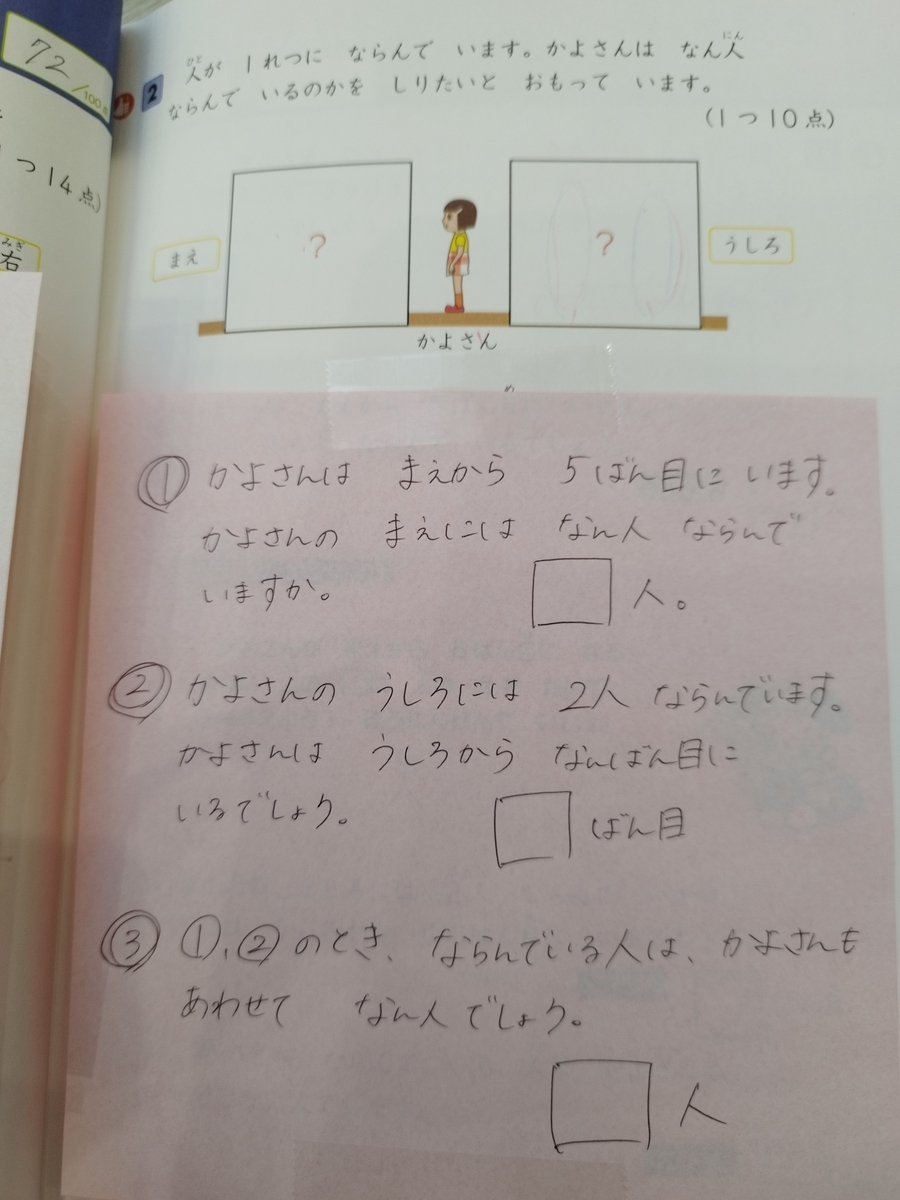 72/100点
つ14点)
みぎ
右
2 人が 1れつに ならんで います。かよさんは なん人
ひと
にん
ならんで いるのかを しりたいと おもって います。
(1つ10点)
まえ
?
?
うしろ
かよさん
め
① かよさんは まえから 5ばん目に います。
かよさんの まえには なん人 ならんで
いますか。 人。
② かよさんの うしろには 2人 ならんでいます。
かよさんは うしろから なんばん目に
いるでしょう。 ばん目
③ ①、②のとき、ならんでいる人は、かよさんも
あわせて なん人でしょう。
人